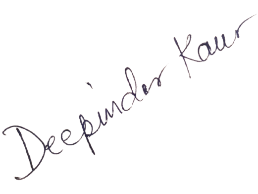 Deepinder Kaur